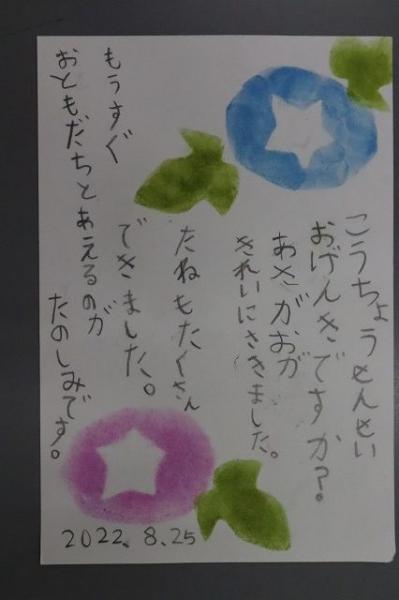 こうちょうせんせい
おげんきですか?
あさがおが
きれいにさきました。
たねもたくさん
できました。
もうすぐ
おともだちとあえるのが
たのしみです。
2022.8.25